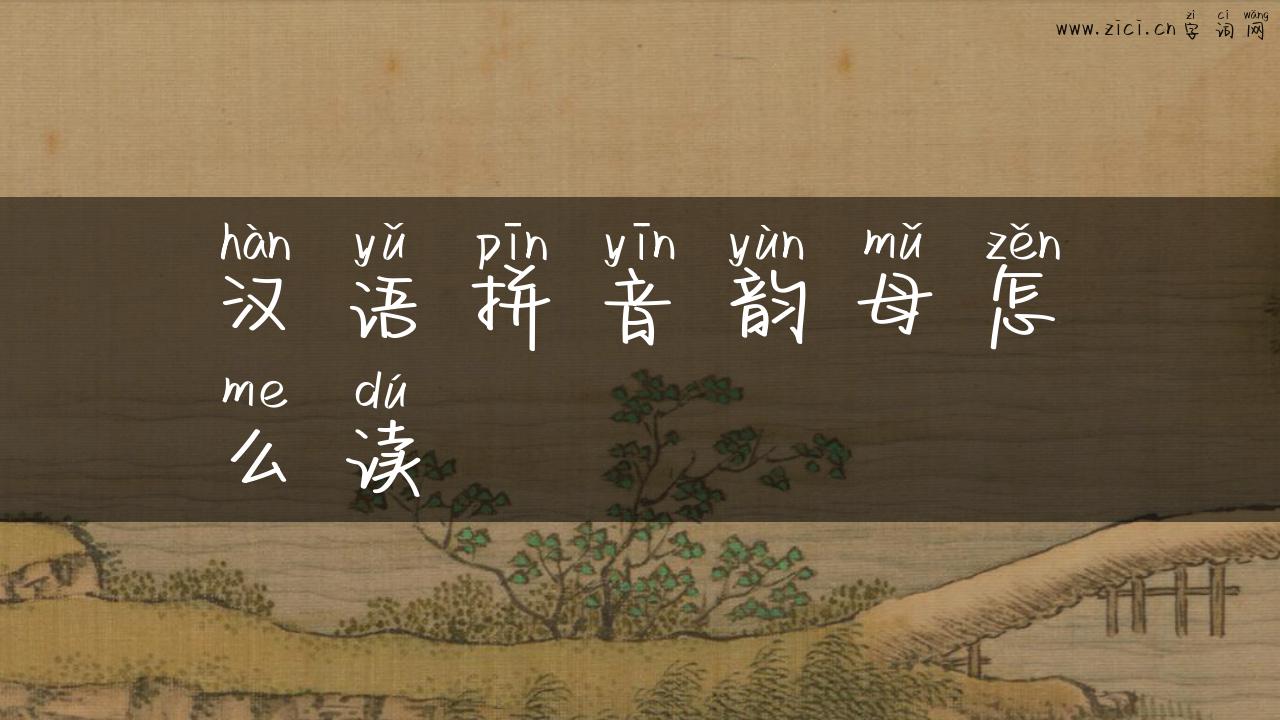 zì cí wǎng
www.zici.cn 字词网
hàn yǔ pīn yīn yùn mǔ zěn
汉语拼音韵母怎
me dú
么读